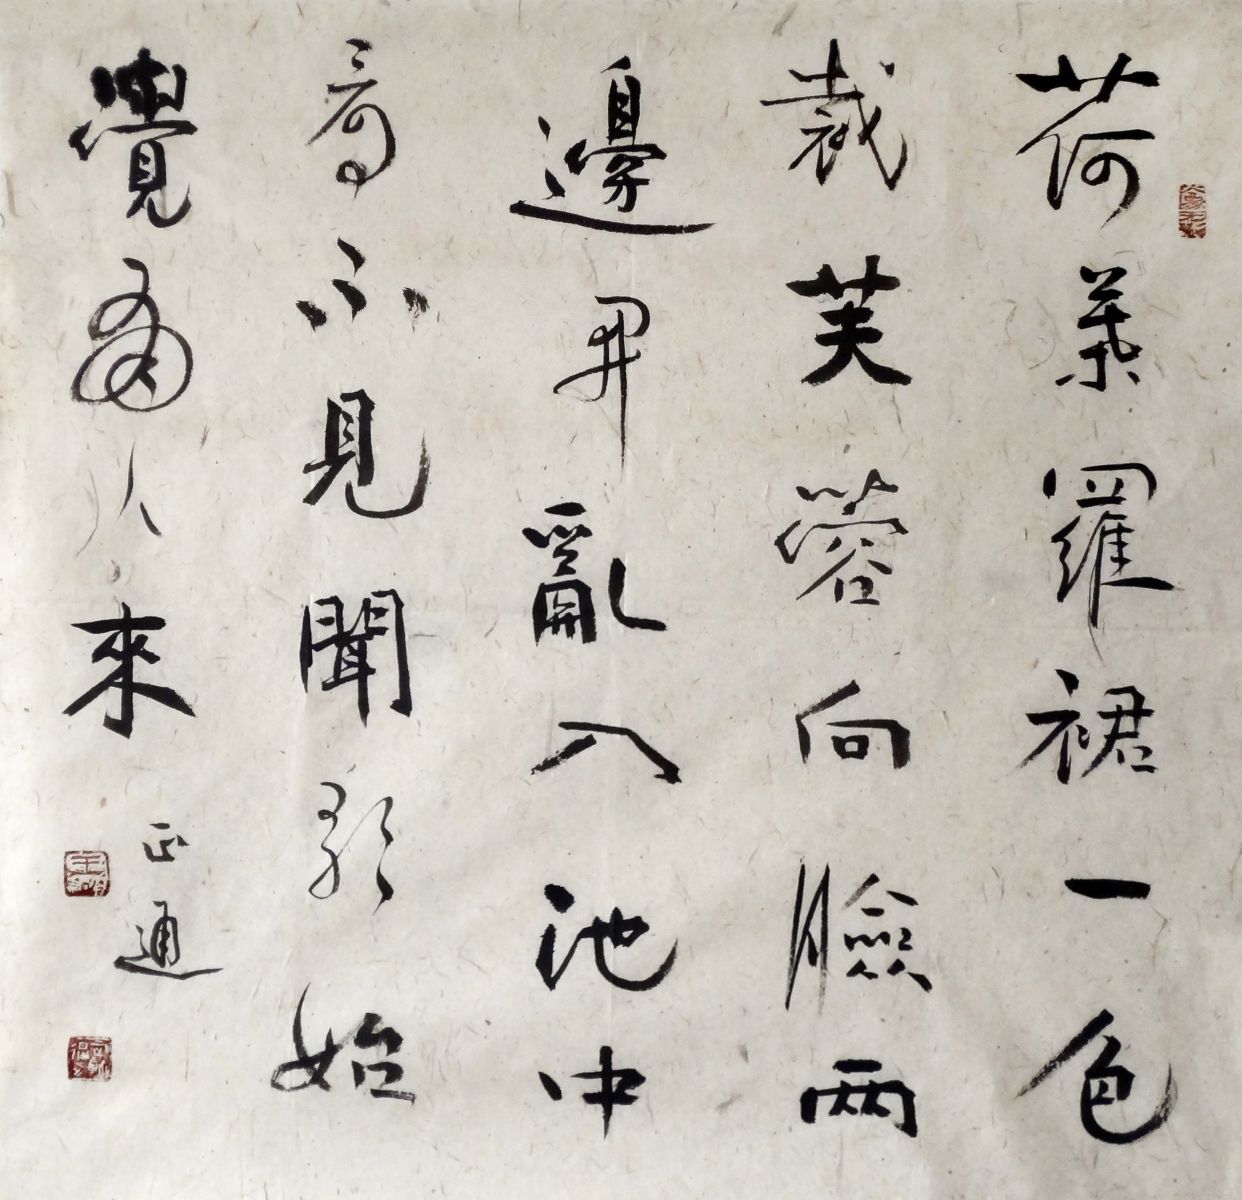 荷葉羅裙一色
裁芙蓉向臉兩
邊開亂入池中
看不見聞歌始
覺有人來
正通